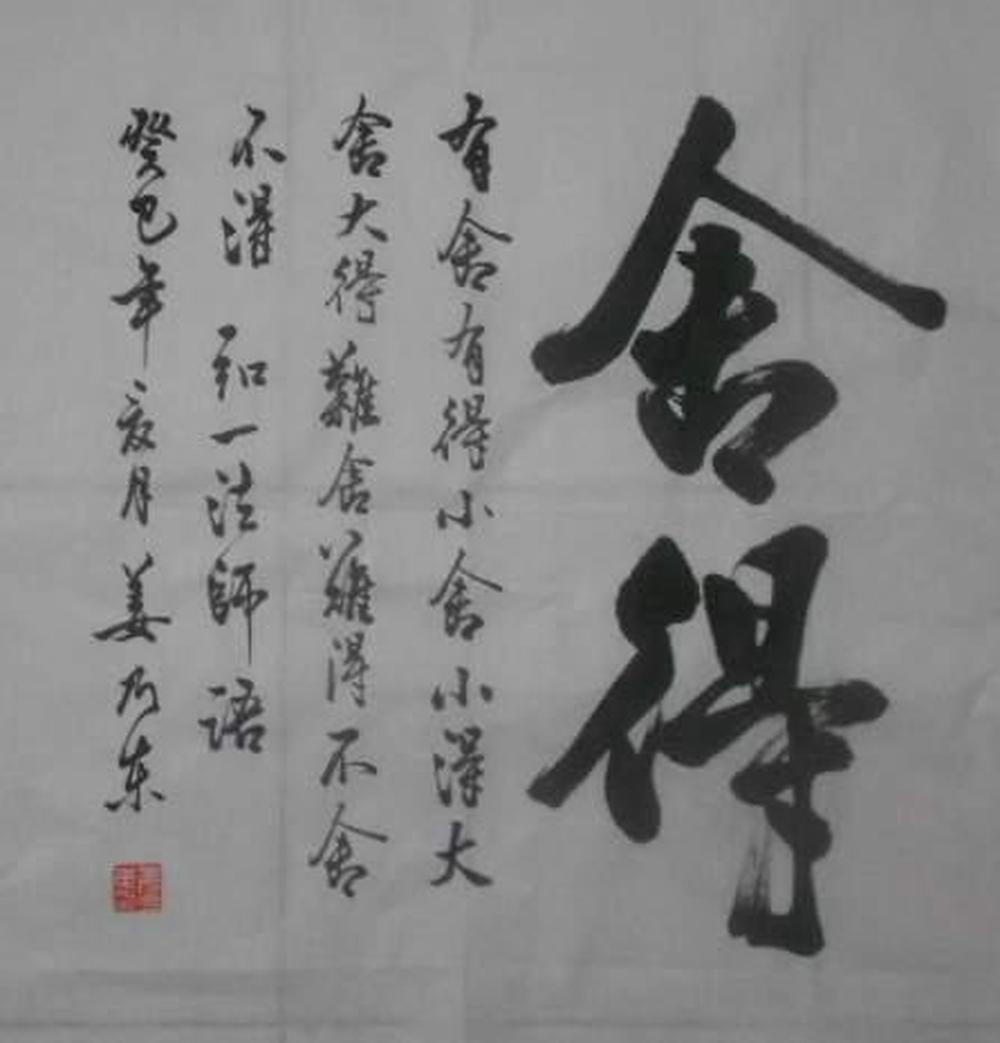 舍得
有舍有得小舍小得大
舍大得難舍難得不舍
不得 和一法師語
癸巳年亥月姜乃东